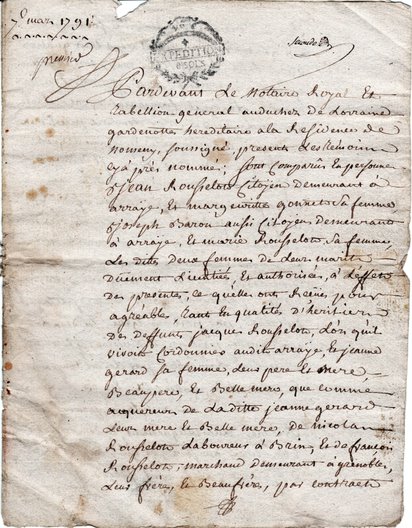 7e mars 1791
EXPEDITION
6 SOLS
Pardevant Le Notaire Royal Et
Tabellion general au duché de Lorraine
gardenotte hereditaire a la Residence de
nomeny, soussigné, present Les temoins
cy après nommé; sont comparûs En personne
Jean Rousselot Citoyen demeurant a
arraye, et margueritte gonnet sa femme,
Joseph Baron aussi Citoyen demeurant
a arraye, et marie Rousselot, sa femme,
Les dittes deux femmes de Leurs marits
duement Licentiés et authorisées, a L'effet
des presentes, ce qu'elles ont Reçûs pour
agréable, tant en qualités d'heritiers
des deffunts jacques Rousselot, Lors qu'il
vivoit cordonnier audit arraye, Et jeanne
gerard sa femme, Leurs pere et mere
Beaupere, et Belle mere, que comme
acquereurs de Laditte jeanne gerard
Leur mere et Belle mere, de nicolas
Rousselot Laboureur à Brin, et de françois
Rousselot, marchand demeurant a grenoble,
Leurs frere, et Beaufrere, par contracts